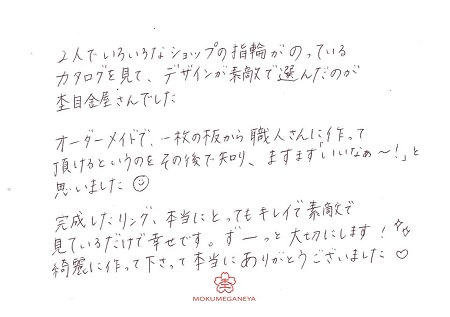 2人でいろいろなショップの指輪がのっている
カタログを見て、デザインが素敵で選んだのが
杢目金屋さんでした
オーダーメイドで、一枚の板から職人さんに作って
頂けるというのをその後で知り、ますます「いいなぁ〜!」と
思いました☺
完成したリング、本当にとってもキレイで素敵で
見ているだけで幸せです。ずーっと大切にします!
綺麗に作って下さって本当にありがとうございました♡
MOKUMEGANEYA